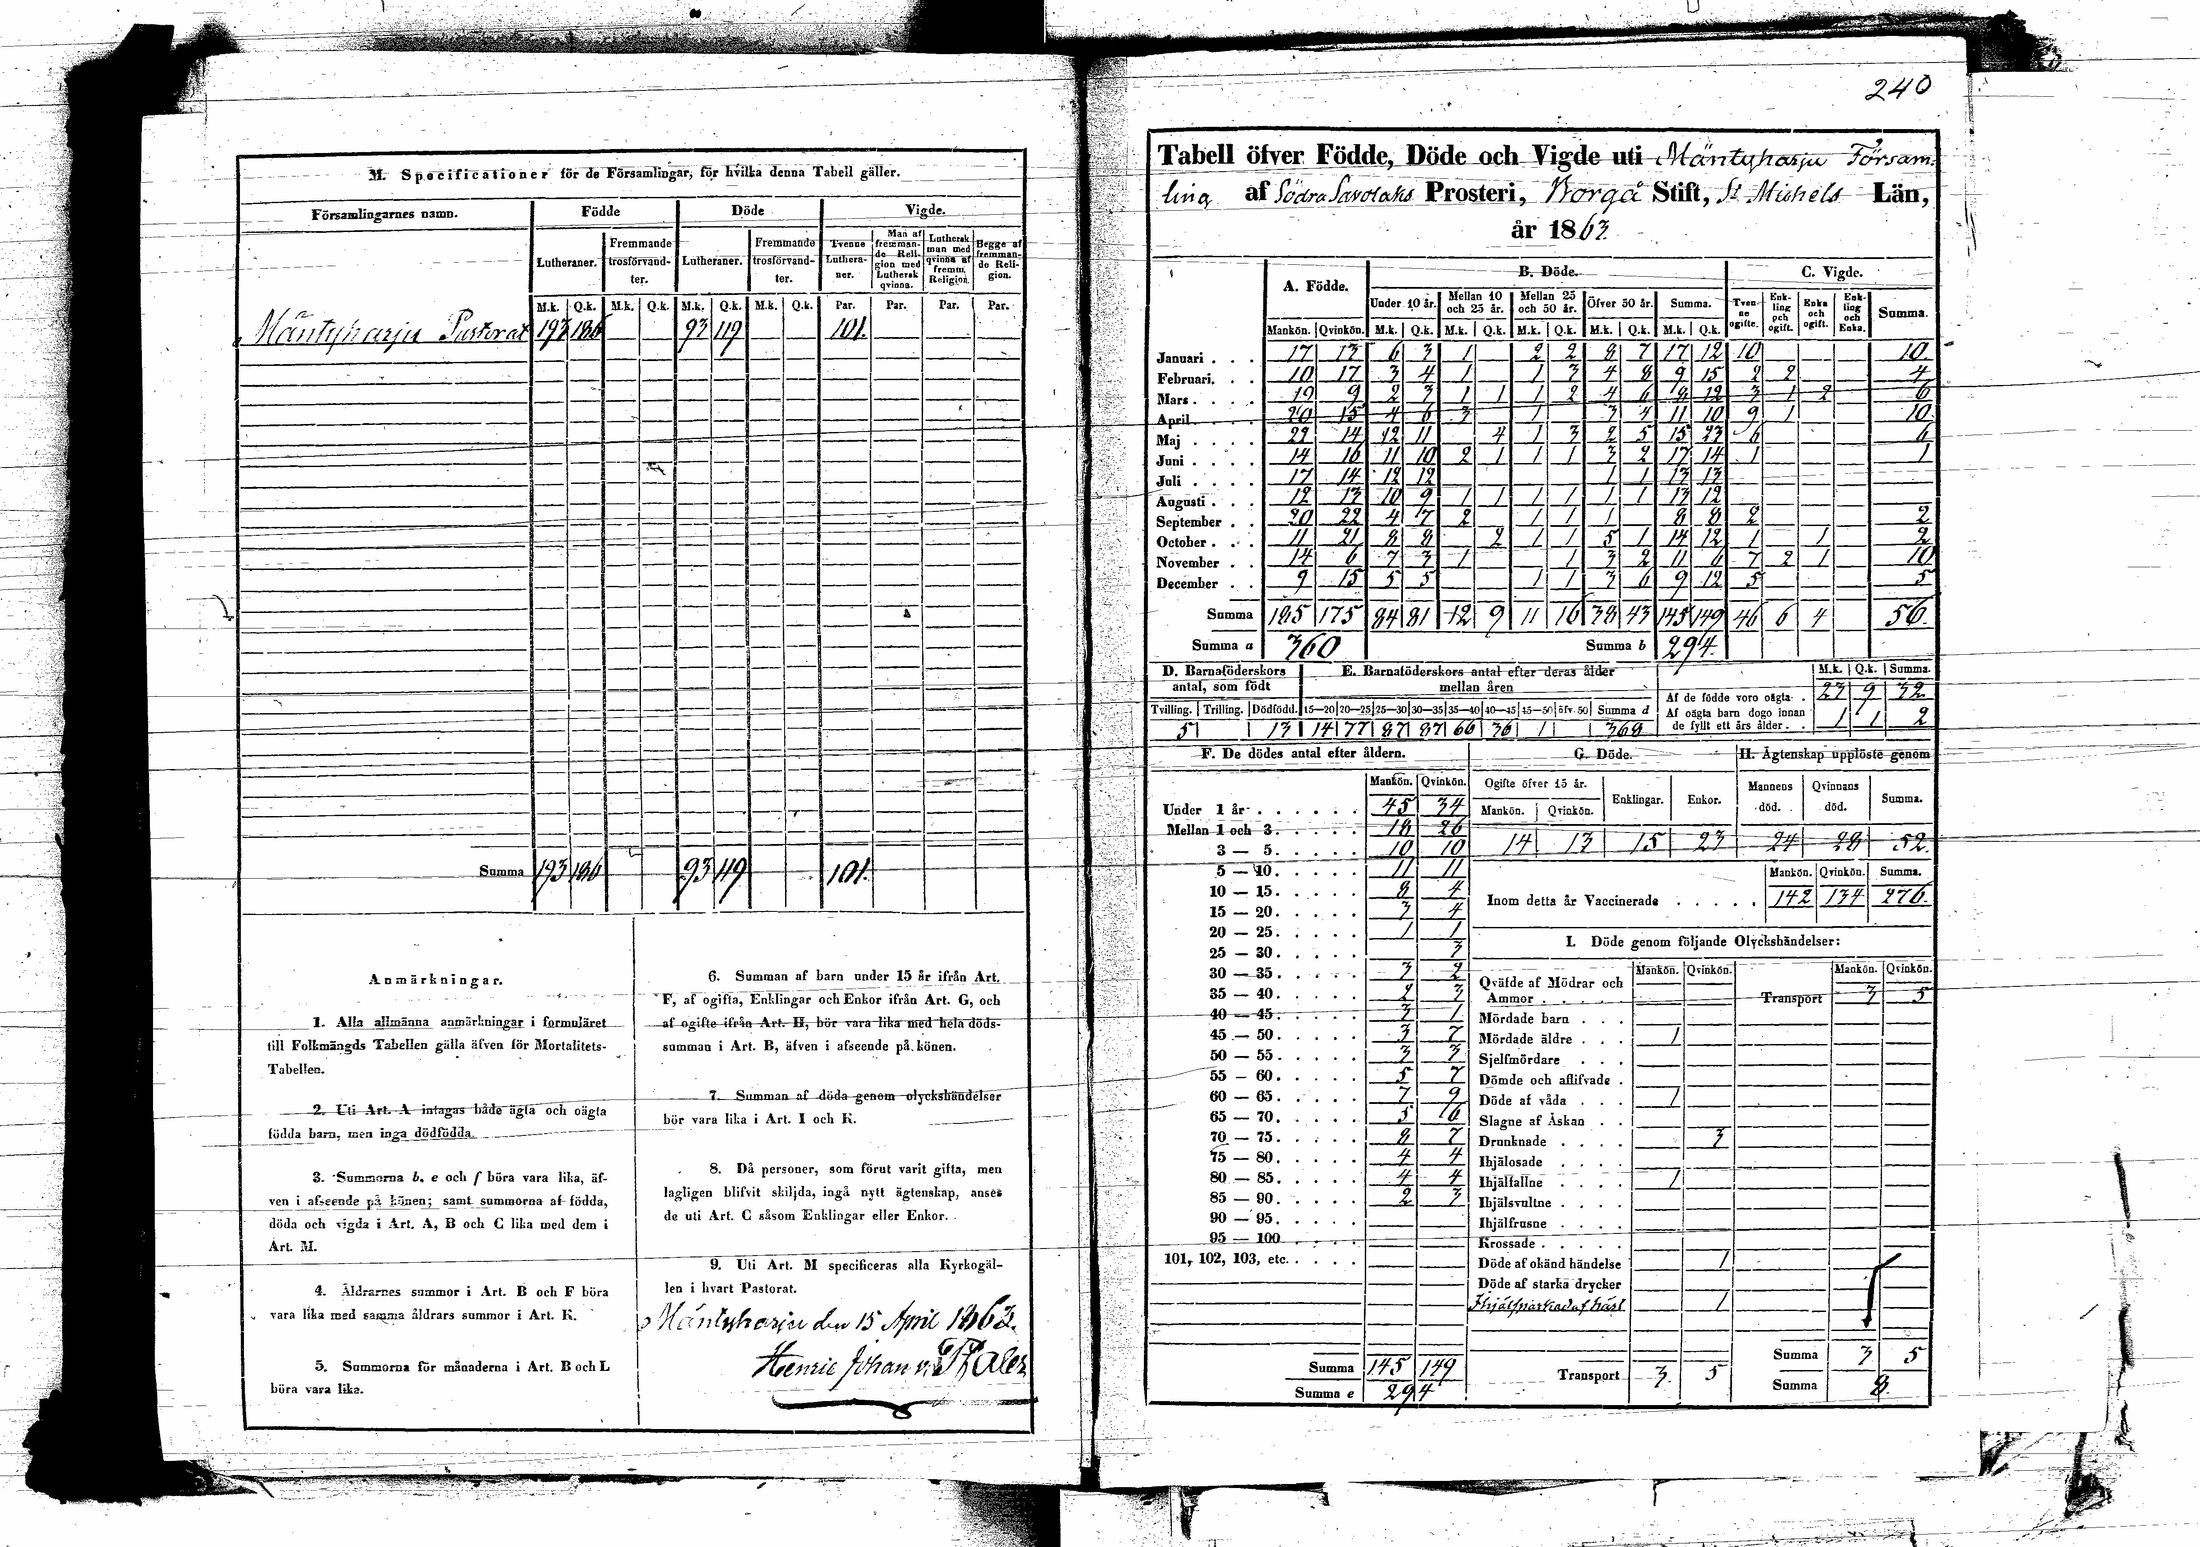 M. Specificationer för de Församlingar, för hvilka denna Tabell gäller.
Församlingarnes namn. Födde Döde Vigde.
Lutheraner. Fremmande trosförvandter. Lutheraner. Fremmande trosförvandter. Tvenne Lutheraner. Man af fremmande Religion med Luthersk qvinna. Luthersk man med qvinna af fremm. Religion. Begge af fremmande Religion.
M.k. Q.k. M.k. Q.k. M.k. Q.k. M.k. Q.k. Par. Par. Par. Par.
Mäntyharju Pastorat 193 186 93 119 101.
Summa 193 186 93 119 101.
Anmärkningar.
1. Alla allmänna anmärkningar i formuläret
till Folkmängds Tabellen gälla äfven för Mortalitets-
Tabellen.
2. Uti Art. A intagas både ägta och oägta
födda barn, men inga dödfödda.
3. Summorna b, e och f böra vara lika, äf-
ven i afseende på könen; samt summorna af födda,
döda och vigda i Art. A, B och C lika med dem i
Art. M.
4. Åldrarnes summor i Art. B och F böra
vara lika med samma åldrars summor i Art. K.
5. Summorna för månaderna i Art. B och L
böra vara lika.
6. Summan af barn under 15 år ifrån Art.
F, af ogifta, Enklingar och Enkor ifrån Art. G, och
af ogifte ifrån Art. H, bör vara lika med hela döds-
summan i Art. B, äfven i afseende på könen.
7. Summan af döda genom olyckshändelser
bör vara lika i Art. I och K.
8. Då personer, som förut varit gifta, men
lagligen blifvit skiljda, ingå nytt ägtenskap, anses
de uti Art. C såsom Enklingar eller Enkor.
9. Uti Art. M specificeras alla Kyrkogäl-
len i hvart Pastorat.
Mäntyharju den 15 April 1863.
Henric Johan v.
240
Tabell öfver Födde, Döde och Vigde uti Mäntyharju Försam-
ling af Södra Savolaks Prosteri, Borgå Stift, St Michels Län,
år 1863.
A. Födde. B. Döde. C. Vigde.
Under 10 år. Mellan 10 och 25 år. Mellan 25 och 50 år. Öfver 50 år. Summa. Tvenne ogifte. Enkling och ogift. Enka och ogift. Enkling och Enka. Summa.
Mankön. Qvinkön. M.k. Q.k. M.k. Q.k. M.k. Q.k. M.k. Q.k. M.k. Q.k.
Januari 17 13 6 3 1 2 2 8 7 17 12 10 10
Februari 10 17 3 4 1 1 3 4 8 9 15 2 2 4
Mars 19 9 2 3 1 1 1 2 4 6 8 12 3 1 2 6
April 20 15 4 6 3 1 3 4 11 10 9 1 10
Maj 22 14 12 11 4 1 3 2 5 15 23 6 6
Juni 14 16 11 10 2 1 1 1 3 2 17 14 1 1
Juli 17 14 12 12 1 1 13 13
Augusti 12 13 10 9 1 1 1 1 1 1 13 12
September 20 22 4 7 2 1 1 1 8 8 2 2
October 11 21 8 8 2 1 1 5 1 14 12 1 1 2
November 14 6 7 3 1 1 3 2 11 6 7 2 1 10
December 9 15 5 5 1 1 3 6 9 12 5 5
Summa 185 175 84 81 12 9 11 16 38 43 145 149 46 6 4 56.
Summa a 360 Summa b 294.
D. Barnaföderskors antal, som födt
E. Barnaföderskors antal efter deras ålder mellan åren
M.k. Q.k. Summa.
Tvilling. Trilling. Dödfödd. 15—20 20—25 25—30 30—35 35—40 40—45 45—50 öfv. 50 Summa d
5 13 14 77 87 87 66 36 1 368
Af de födde voro oägta 23 9 32
Af oägta barn dogo innan de fyllt ett års ålder 1 1 2
F. De dödes antal efter åldern.
Mankön. Qvinkön.
Under 1 år 45 34
Mellan 1 och 3 18 26
3 — 5 10 10
5 — 10 11 11
10 — 15 8 4
15 — 20 3 4
20 — 25 1 1
25 — 30 3
30 — 35 3 2
35 — 40 2 3
40 — 45 3 1
45 — 50 3 7
50 — 55 3 3
55 — 60 5 7
60 — 65 7 9
65 — 70 5 16
70 — 75 8 7
75 — 80 4 4
80 — 85 4 4
85 — 90 2 3
90 — 95
95 — 100
101, 102, 103, etc.
Summa 145 149
Summa e 294
G. Döde.
Ogifte öfver 15 år. Enklingar. Enkor.
Mankön. Qvinkön.
14 13 15 23
H. Ägtenskap upplöste genom
Mannens död. Qvinnans död. Summa.
24 28 52.
Mankön. Qvinkön. Summa.
Inom detta år Vaccinerade 142 134 276.
I. Döde genom följande Olyckshändelser:
Mankön. Qvinkön. Mankön. Qvinkön.
Qväfde af Mödrar och Ammor
Transport 3 5
Mördade barn
Mördade äldre 1
Sjelfmördare
Dömde och aflifvade
Döde af våda 1
Slagne af Åskan
Drunknade 3
Ihjälosade
Ihjälfallne 1
Ihjälsvultne
Ihjälfrusne
Krossade
Döde af okänd händelse 1
Döde af starka drycker
Ihjälsparkad af häst 1
Transport 3 5
Summa 3 5
Summa 8.